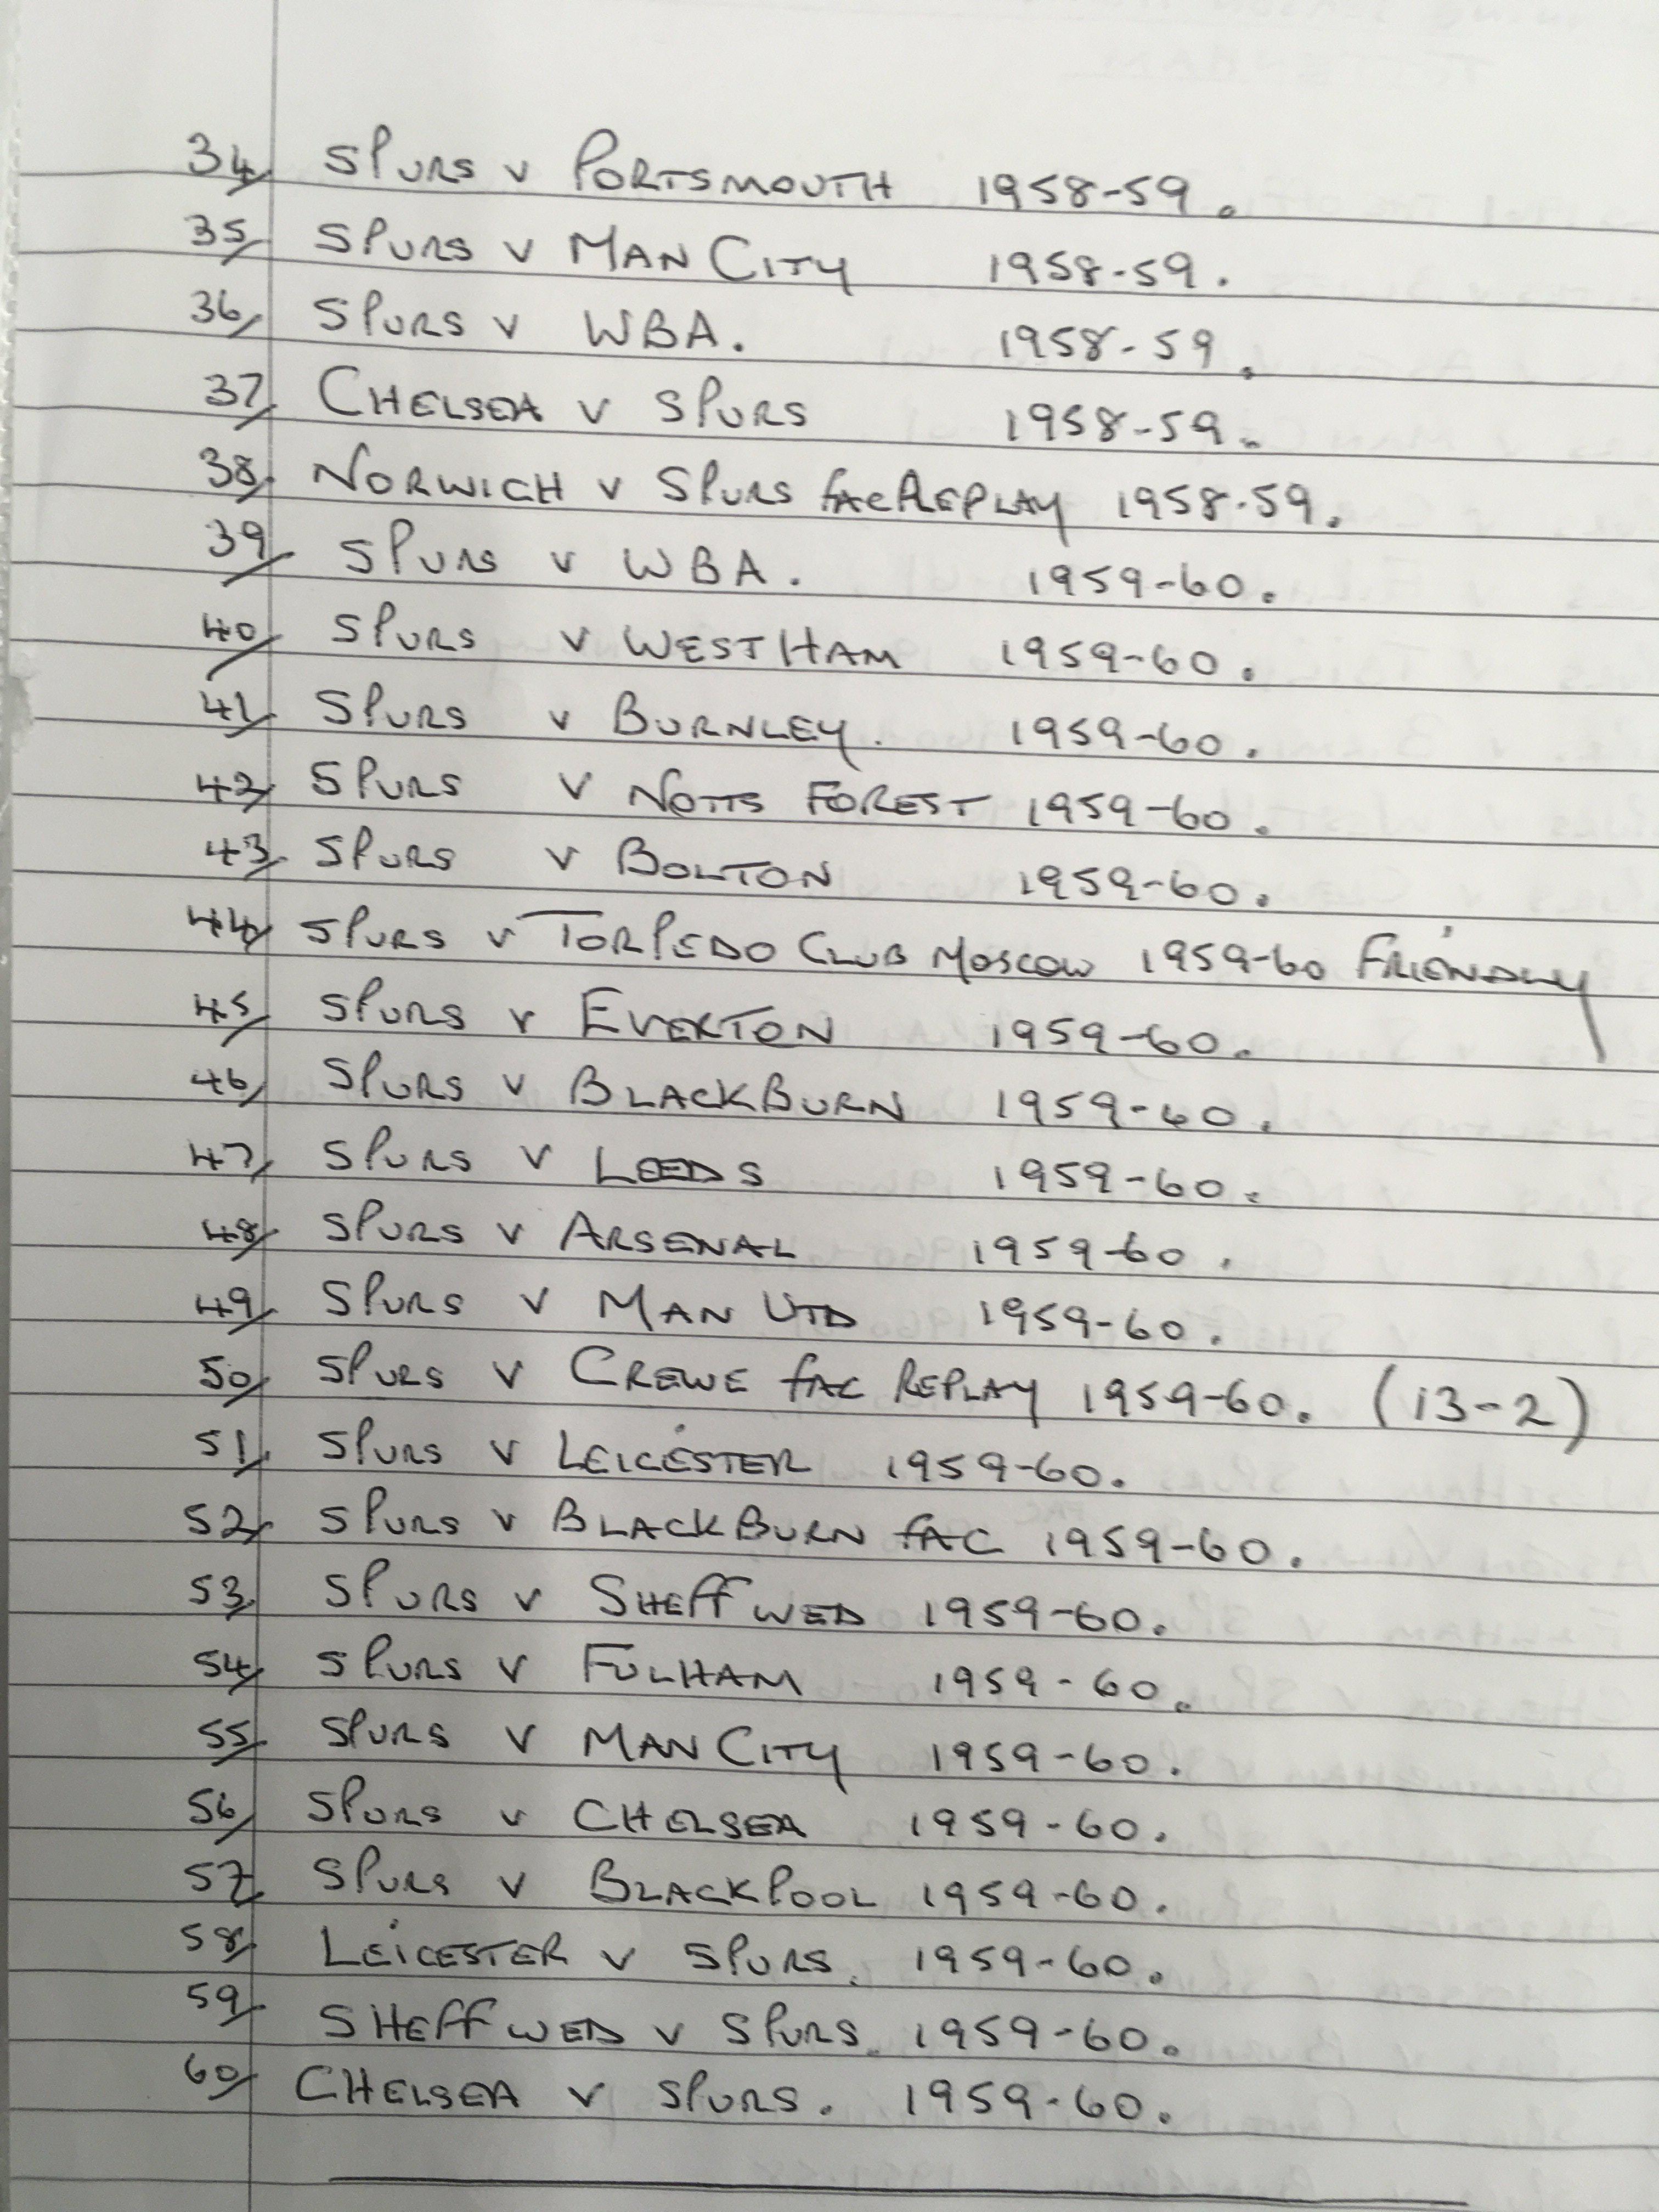 34/ SPURS v PORTSMOUTH 1958-59.
35/ SPURS v MAN CITY 1958-59.
36/ SPURS v WBA. 1958-59.
37/ CHELSEA v SPURS 1958-59.
38/ NORWICH v SPURS FAC REPLAY 1958-59.
39/ SPURS v WBA. 1959-60.
40/ SPURS v WEST HAM 1959-60.
41/ SPURS v BURNLEY. 1959-60.
42/ SPURS v NOTTS FOREST 1959-60.
43/ SPURS v BOLTON 1959-60.
44/ SPURS v TORPEDO CLUB MOSCOW 1959-60 FRIENDLY
45/ SPURS v EVERTON 1959-60.
46/ SPURS v BLACKBURN 1959-60.
47/ SPURS v LEEDS 1959-60.
48/ SPURS v ARSENAL 1959-60.
49/ SPURS v MAN UTD 1959-60.
50/ SPURS v CREWE FAC REPLAY 1959-60. (13-2)
51/ SPURS v LEICESTER 1959-60.
52/ SPURS v BLACKBURN FAC 1959-60.
53/ SPURS v SHEFF WED 1959-60.
54/ SPURS v FULHAM 1959-60.
55/ SPURS v MAN CITY 1959-60.
56/ SPURS v CHELSEA 1959-60.
57/ SPURS v BLACKPOOL 1959-60.
58/ LEICESTER v SPURS. 1959-60.
59/ SHEFF WED v SPURS. 1959-60.
60/ CHELSEA v SPURS. 1959-60.